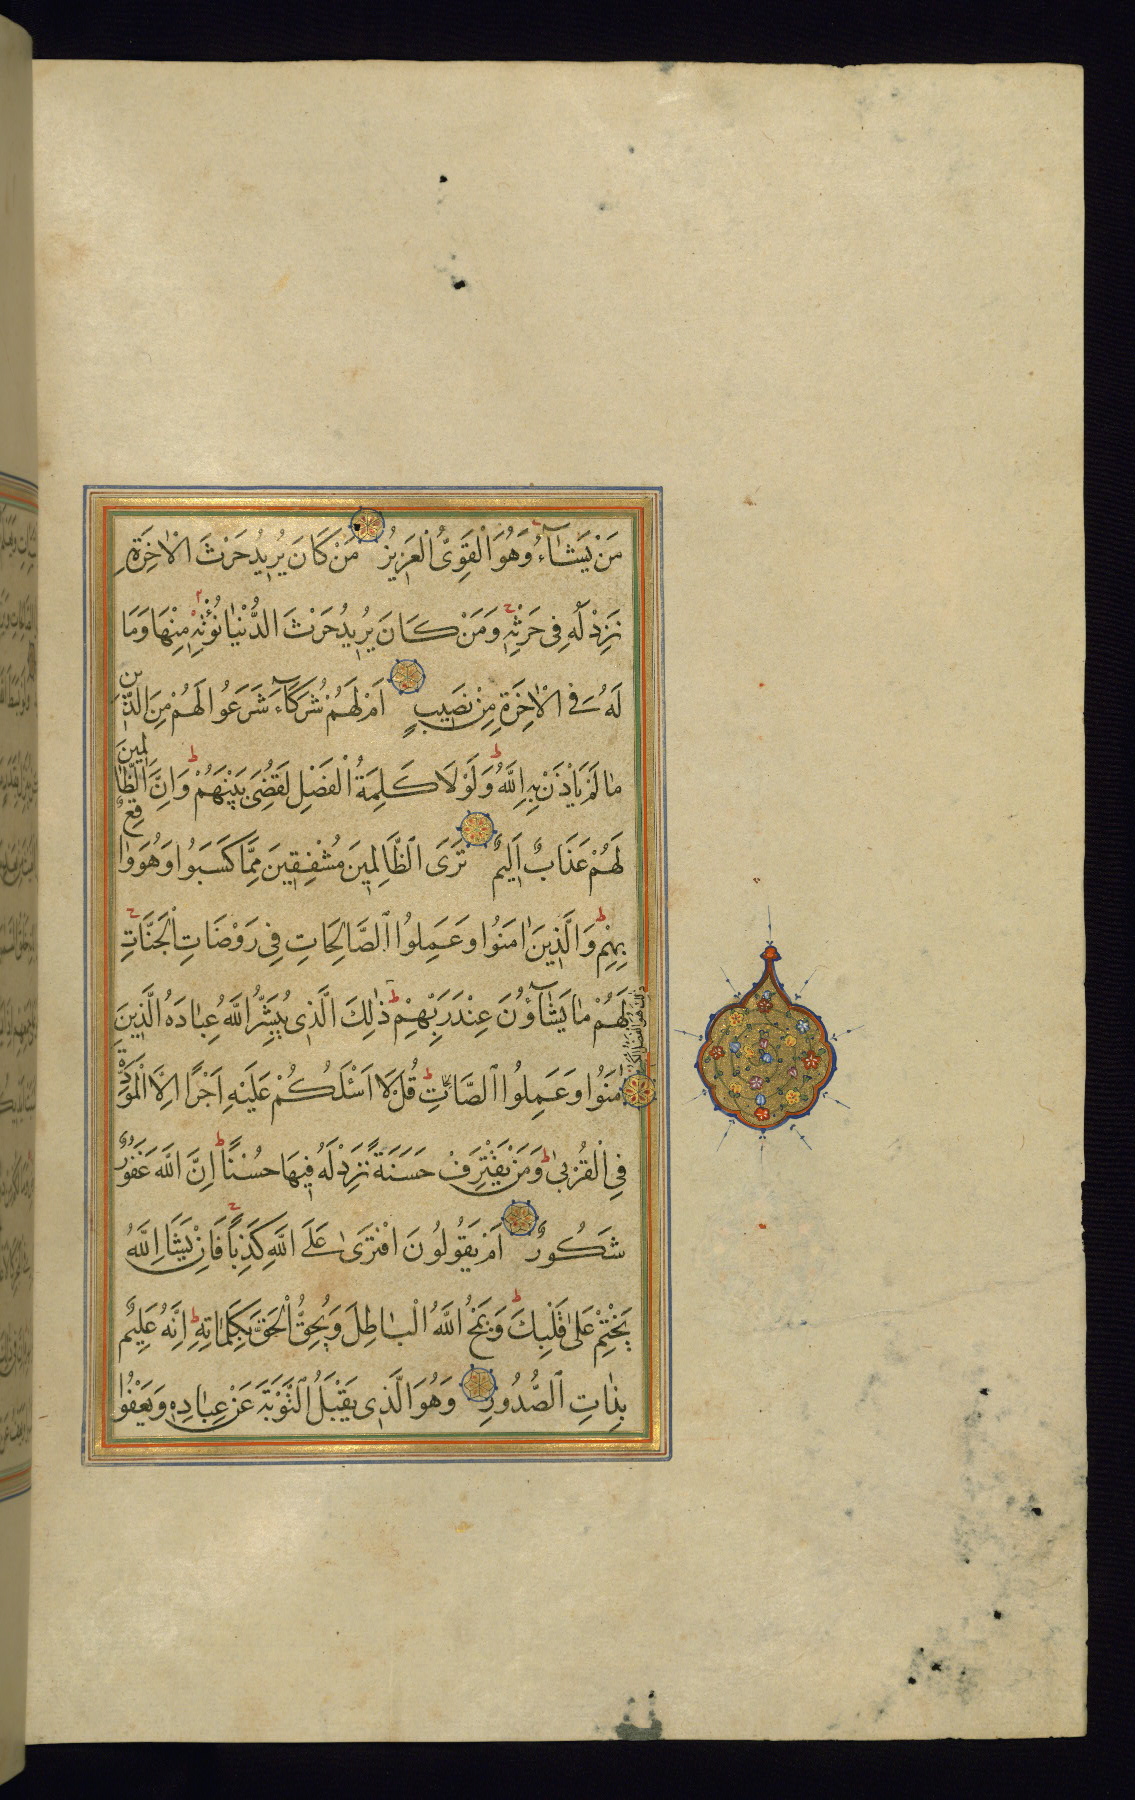 مَنْ يَشَاۤءُ وَهُوَ الْقَوِىُّ الْعَزِيزُ مَنْ كَانَ يُرِيدُ حَرْثَ الْاٰخِرَةِ
نَزِدْ لَهُ فِى حَرْثِهِ وَمَنْ كَانَ يُرِيدُ حَرْثَ الدُّنْيَا نُؤْتِهِ مِنْهَا وَمَا
لَهُ فِى الْاٰخِرَةِ مِنْ نَصِيبٍ اَمْ لَهُمْ شُرَكَاۤءُ شَرَعُوا لَهُمْ مِنَ الدِّينِ
مَا لَمْ يَاْذَنْ بِهِ اللَّهُ وَلَوْلَا كَلِمَةُ الْفَصْلِ لَقُضِىَ بَيْنَهُمْ وَاِنَّ الظَّالِمِينَ
لَهُمْ عَذَابٌ اَلِيمٌ تَرَى الظَّالِمِينَ مُشْفِقِينَ مِمَّا كَسَبُوا وَهُوَ وَاقِعٌ
بِهِمْ وَالَّذِينَ اٰمَنُوا وَعَمِلُوا الصَّالِحَاتِ فِى رَوْضَاتِ الْجَنَّاتِ
لَهُمْ مَا يَشَاۤؤُنَ عِنْدَ رَبِّهِمْ ذٰلِكَ الَّذِى يُبَشِّرُ اللَّهُ عِبَادَهُ الَّذِينَ
ذلك هو الفضل الكبير
اٰمَنُوا وَعَمِلُوا الصَّالِحَاتِ قُلْ لَا اَسْئَلُكُمْ عَلَيْهِ اَجْرًا اِلَّا الْمَوَدَّةَ
فِى الْقُرْبٰى وَمَنْ يَقْتَرِفْ حَسَنَةً نَزِدْ لَهُ فِيهَا حُسْنًا اِنَّ اللَّهَ غَفُورٌ
شَكُورٌ اَمْ يَقُولُونَ افْتَرٰى عَلَى اللَّهِ كَذِبًا فَاِنْ يَشَاِ اللَّهُ
يَخْتِمْ عَلٰى قَلْبِكَ وَيَمْحُ اللَّهُ الْبَاطِلَ وَيُحِقُّ الْحَقَّ بِكَلِمَاتِهِ اِنَّهُ عَلِيمٌ
بِذَاتِ الصُّدُورِ وَهُوَ الَّذِى يَقْبَلُ التَّوْبَةَ عَنْ عِبَادِهِ وَيَعْفُوا